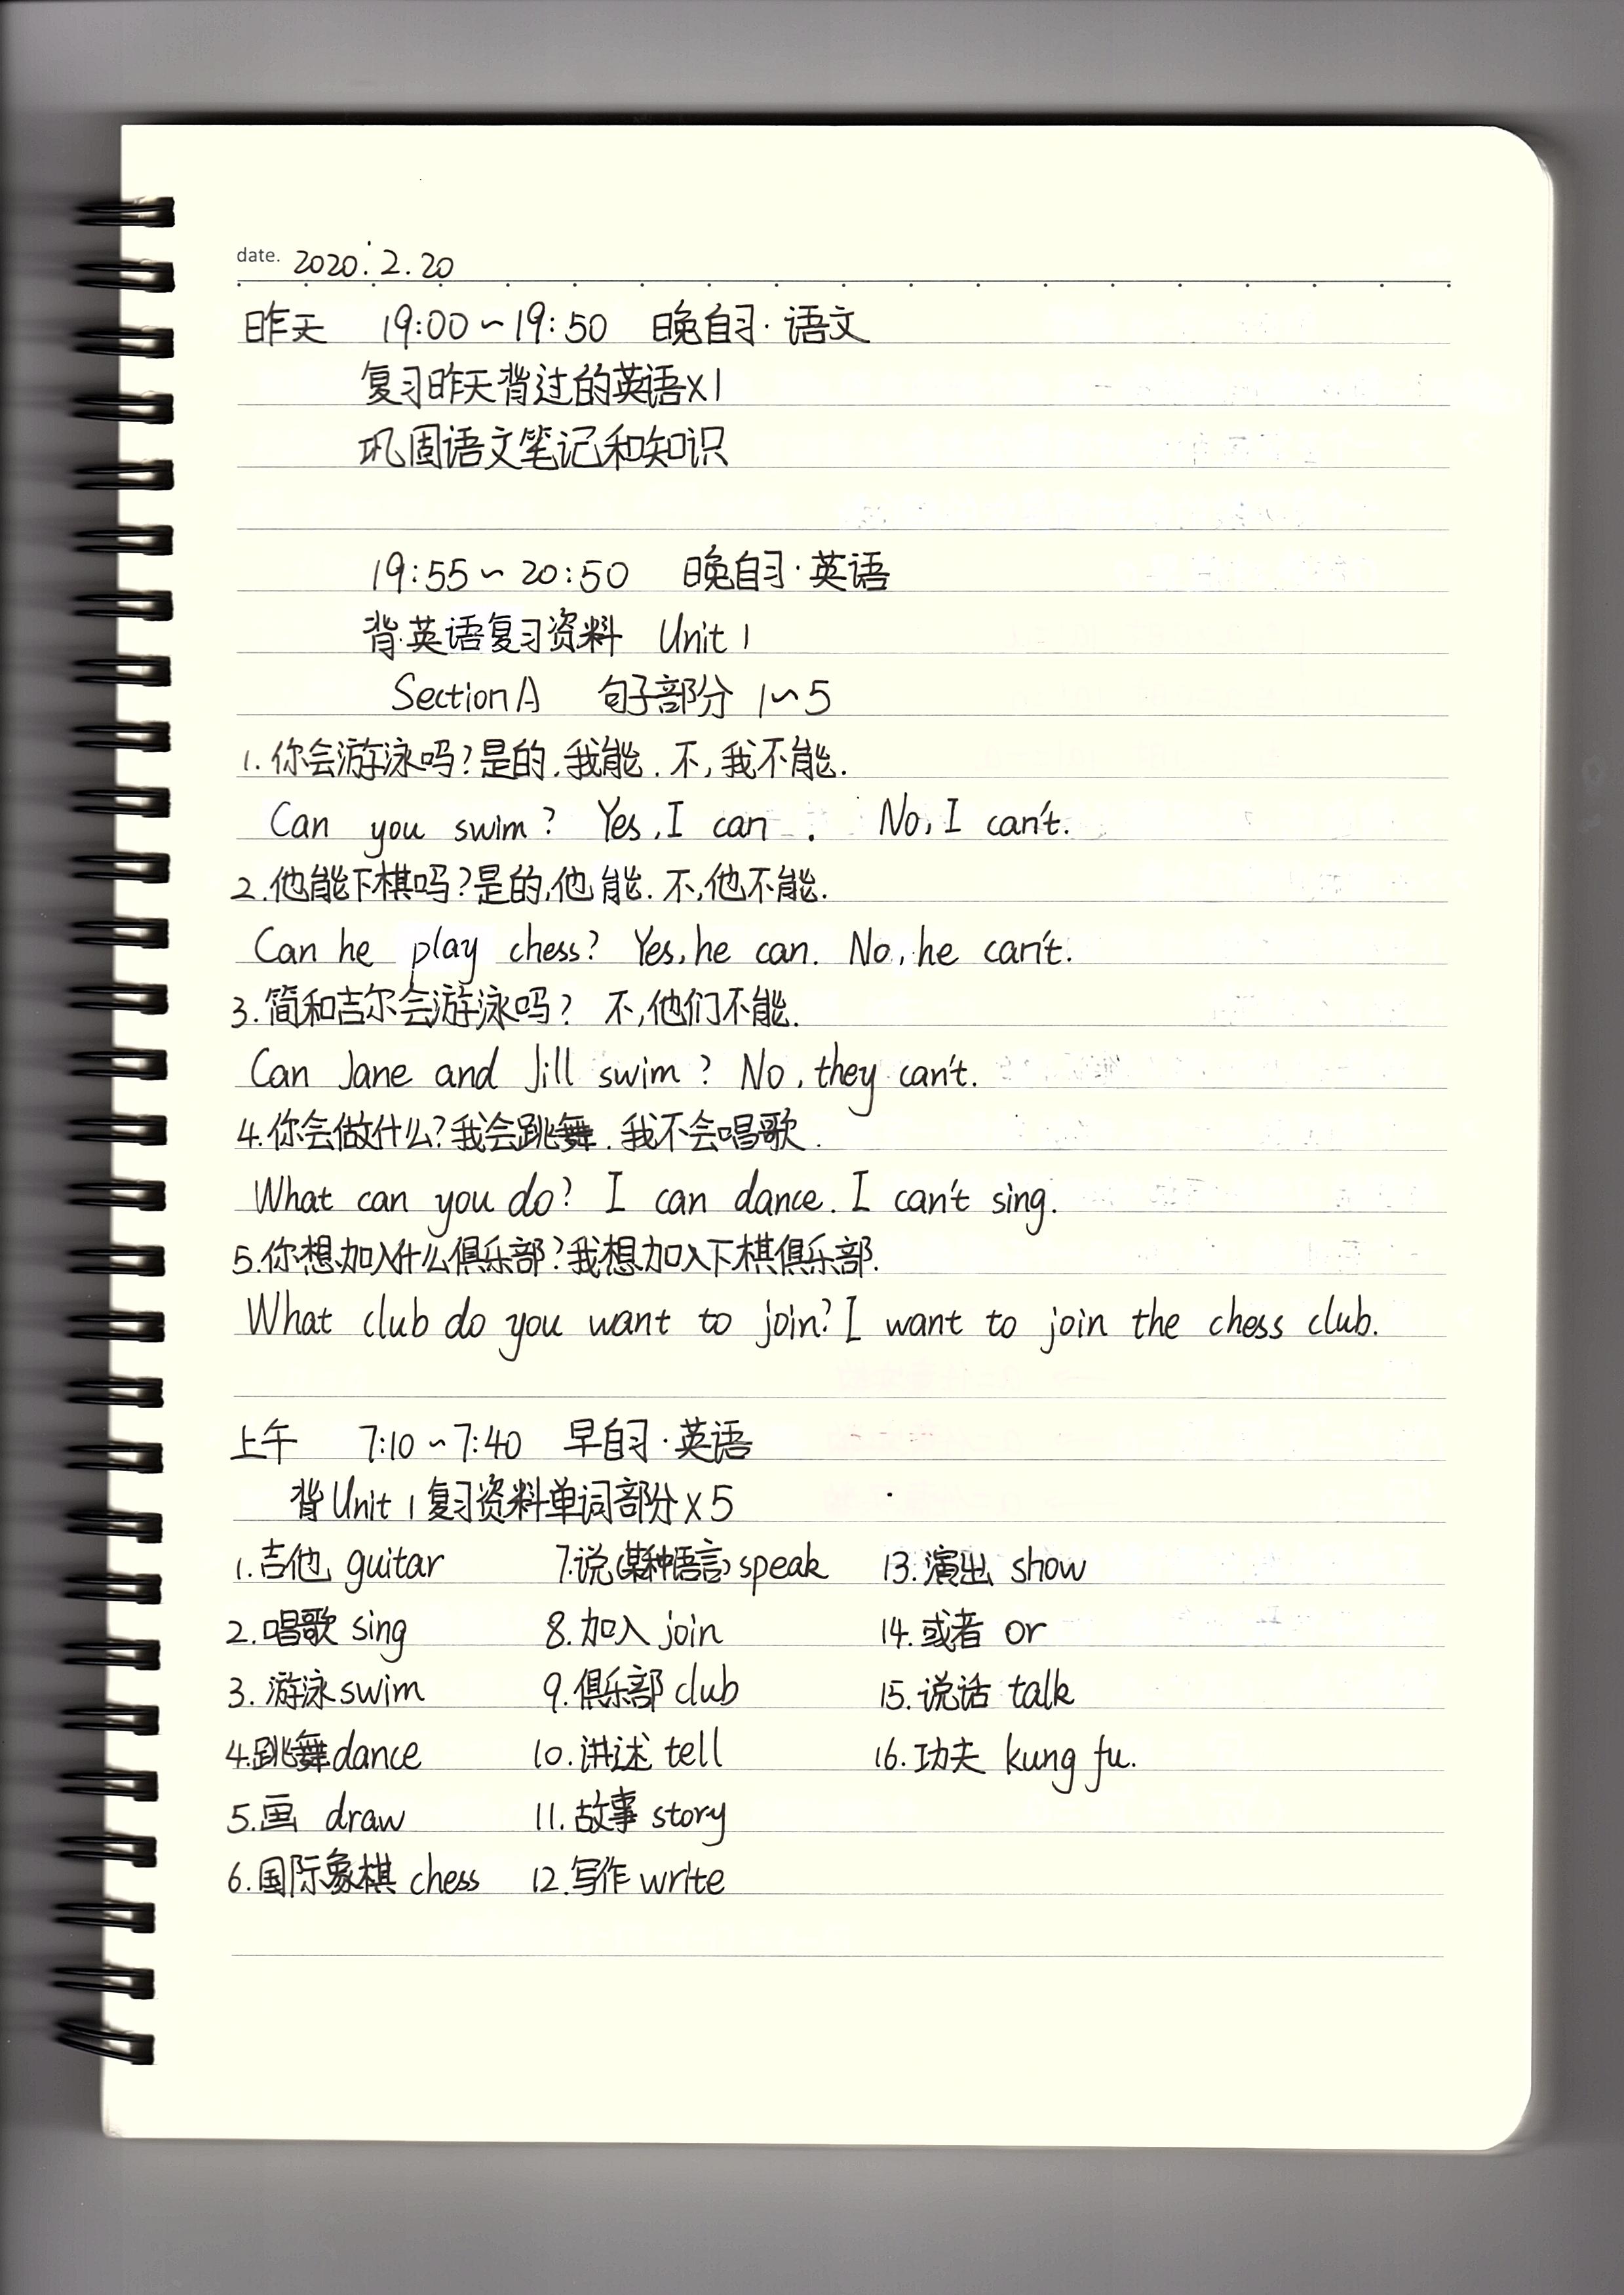 date. 2020.2.20
昨天 19:00~19:50 晚自习·语文
复习昨天背过的英语×1
巩固语文笔记和知识
19:55~20:50 晚自习·英语
背英语复习资料 Unit 1
Section A 句子部分 1~5
1.你会游泳吗?是的,我能.不,我不能.
Can you swim? Yes,I can. No,I can't.
2.他能下棋吗?是的,他能.不,他不能.
Can he play chess? Yes,he can. No,he can't.
3.简和吉尔会游泳吗? 不,他们不能.
Can Jane and Jill swim? No,they can't.
4.你会做什么?我会跳舞.我不会唱歌.
What can you do? I can dance. I can't sing.
5.你想加入什么俱乐部?我想加入下棋俱乐部.
What club do you want to join? I want to join the chess club.
上午 7:10~7:40 早自习·英语
背Unit 1复习资料单词部分×5
1.吉他 guitar 7.说(某种语言)speak 13.演出 show
2.唱歌 sing 8.加入 join 14.或者 or
3.游泳 swim 9.俱乐部 club 15.说话 talk
4.跳舞 dance 10.讲述 tell 16.功夫 kung fu.
5.画 draw 11.故事 story
6.国际象棋 chess 12.写作 write